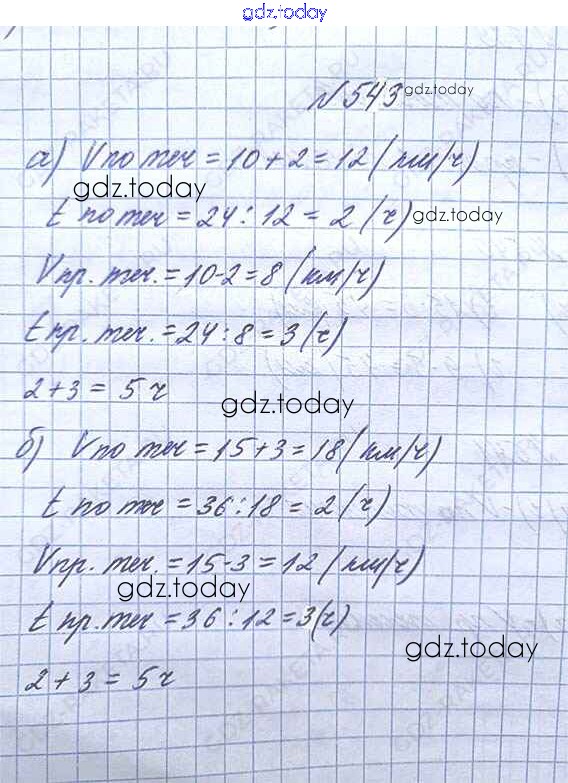 gdz.today
№543 gdz.today
а) Vпо теч = 10 + 2 = 12 (км/ч)
gdz.today
t по теч = 24 : 12 = 2 (ч) gdz.today
Vпр. теч. = 10 - 2 = 8 (км/ч)
t пр. теч. = 24 : 8 = 3 (ч)
2 + 3 = 5 ч
gdz.today
б) Vпо теч = 15 + 3 = 18 (км/ч)
t по теч = 36 : 18 = 2 (ч)
Vпр. теч. = 15 - 3 = 12 (км/ч)
gdz.today
t пр. теч = 36 : 12 = 3 (ч)
gdz.today
2 + 3 = 5 ч